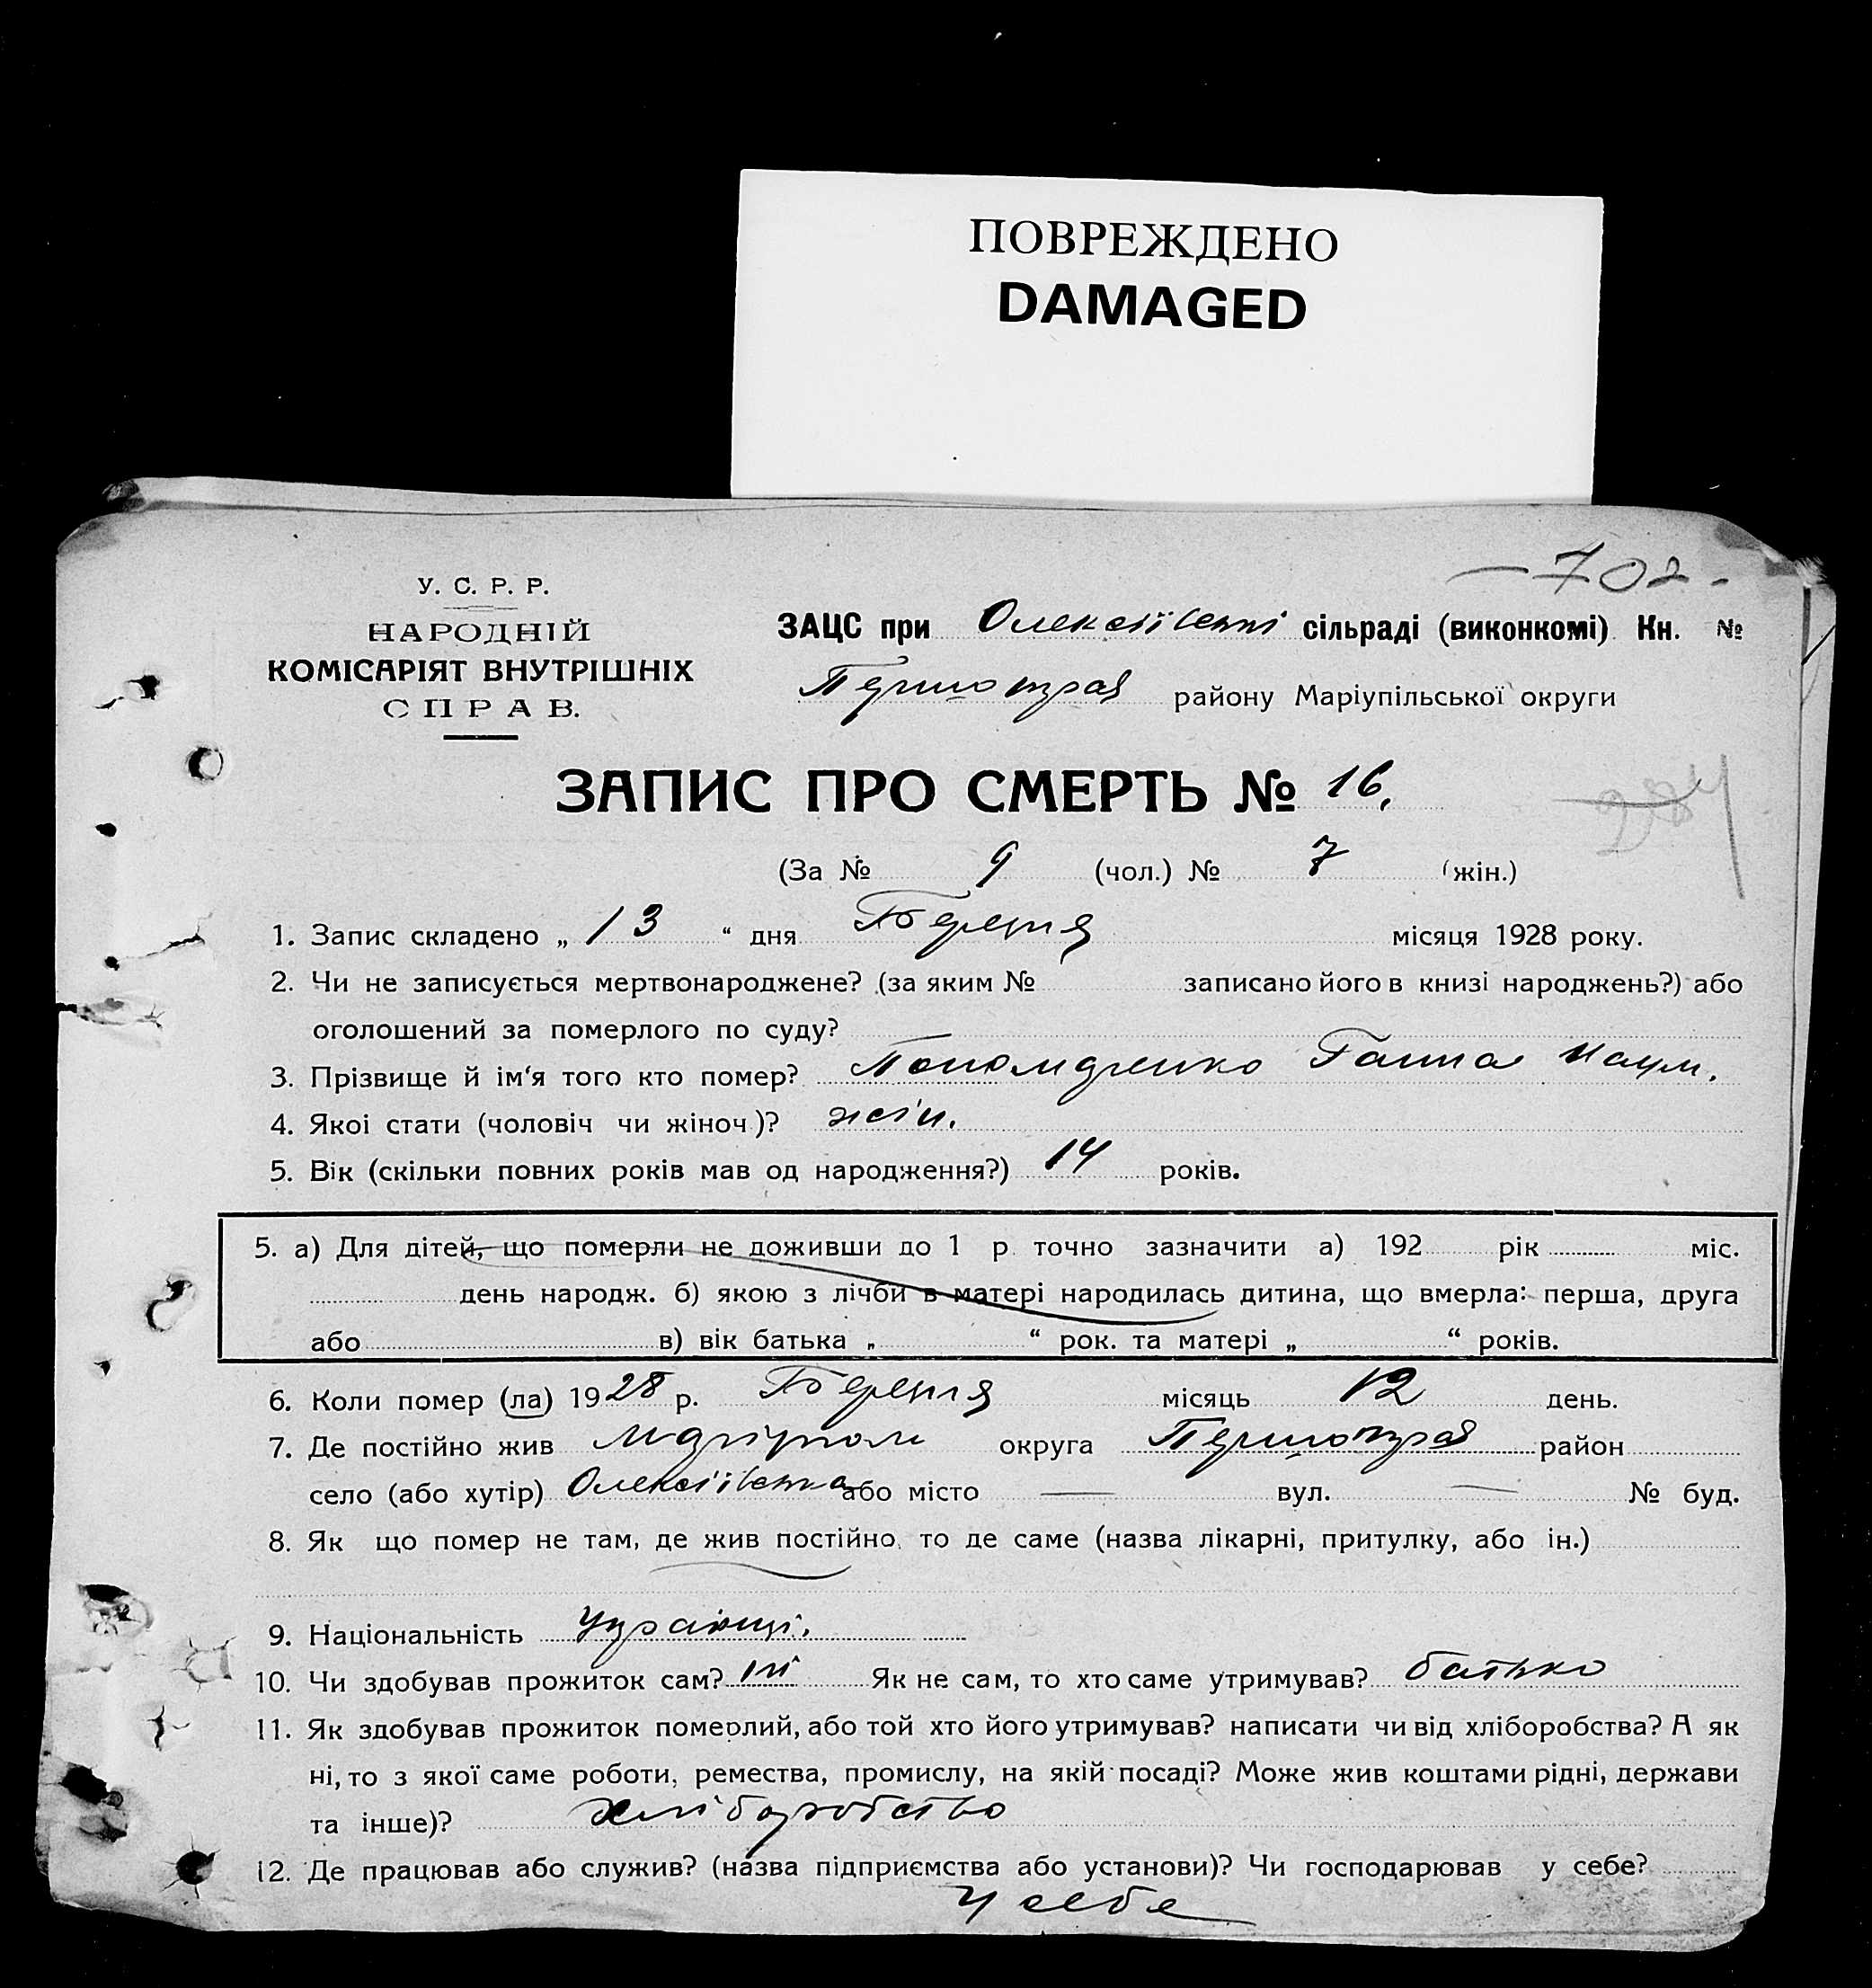 ПОВРЕЖДЕНО
DAMAGED
702
У. С. Р. Р.
НАРОДНІЙ
КОМІСАРІЯТ ВНУТРІШНІХ
СПРАВ.
ЗАЦС при Олексіївські сільраді (виконкомі) Кн. №
району Маріупільської округи
ЗАПИС ПРО СМЕРТЬ № 16.
(За № 9 (чол.) № 7 (жін.)
1. Запис складено „ 13 “ дня Березня місяця 1928 року.
2. Чи не записується мертвонароджене? (за яким № записано його в книзі народжень?) або
оголошений за померлого по суду?
3. Прізвище й ім'я того кто помер? Пономаренко Ганна Наум.
4. Якоі стати (чоловіч чи жіноч.)? жін.
5. Вік (скільки повних років мав од народження?) 14 років.
5. а) Для дітей, що померли не доживши до 1 р. точно зазначити а) 192 рік міс.
день народж. б) якою з лічби в матері народилась дитина, що вмерла: перша, друга
або в) вік батька „ “ рок. та матері „ “ років.
6. Коли помер (ла) 1928 р. Березня місяць 12 день.
7. Де постійно жив округа район
село (або хутір) Олексіївка або місто — вул. — № буд.
8. Як що помер не там, де жив постійно, то де саме (назва лікарні, притулку, або ін.)
9. Національність
10. Чи здобував прожиток сам? ні Як не сам, то хто саме утримував? батько
11. Як здобував прожиток померлий, або той хто його утримував? написати чи від хліборобства? А як
ні, то з якої саме роботи, ремества, промислу, на якій посаді? Може жив коштами рідні, держави
та інше)? хліборобство
12. Де працював або служив? (назва підприємства або установи)? Чи господарював у себе?
у себе